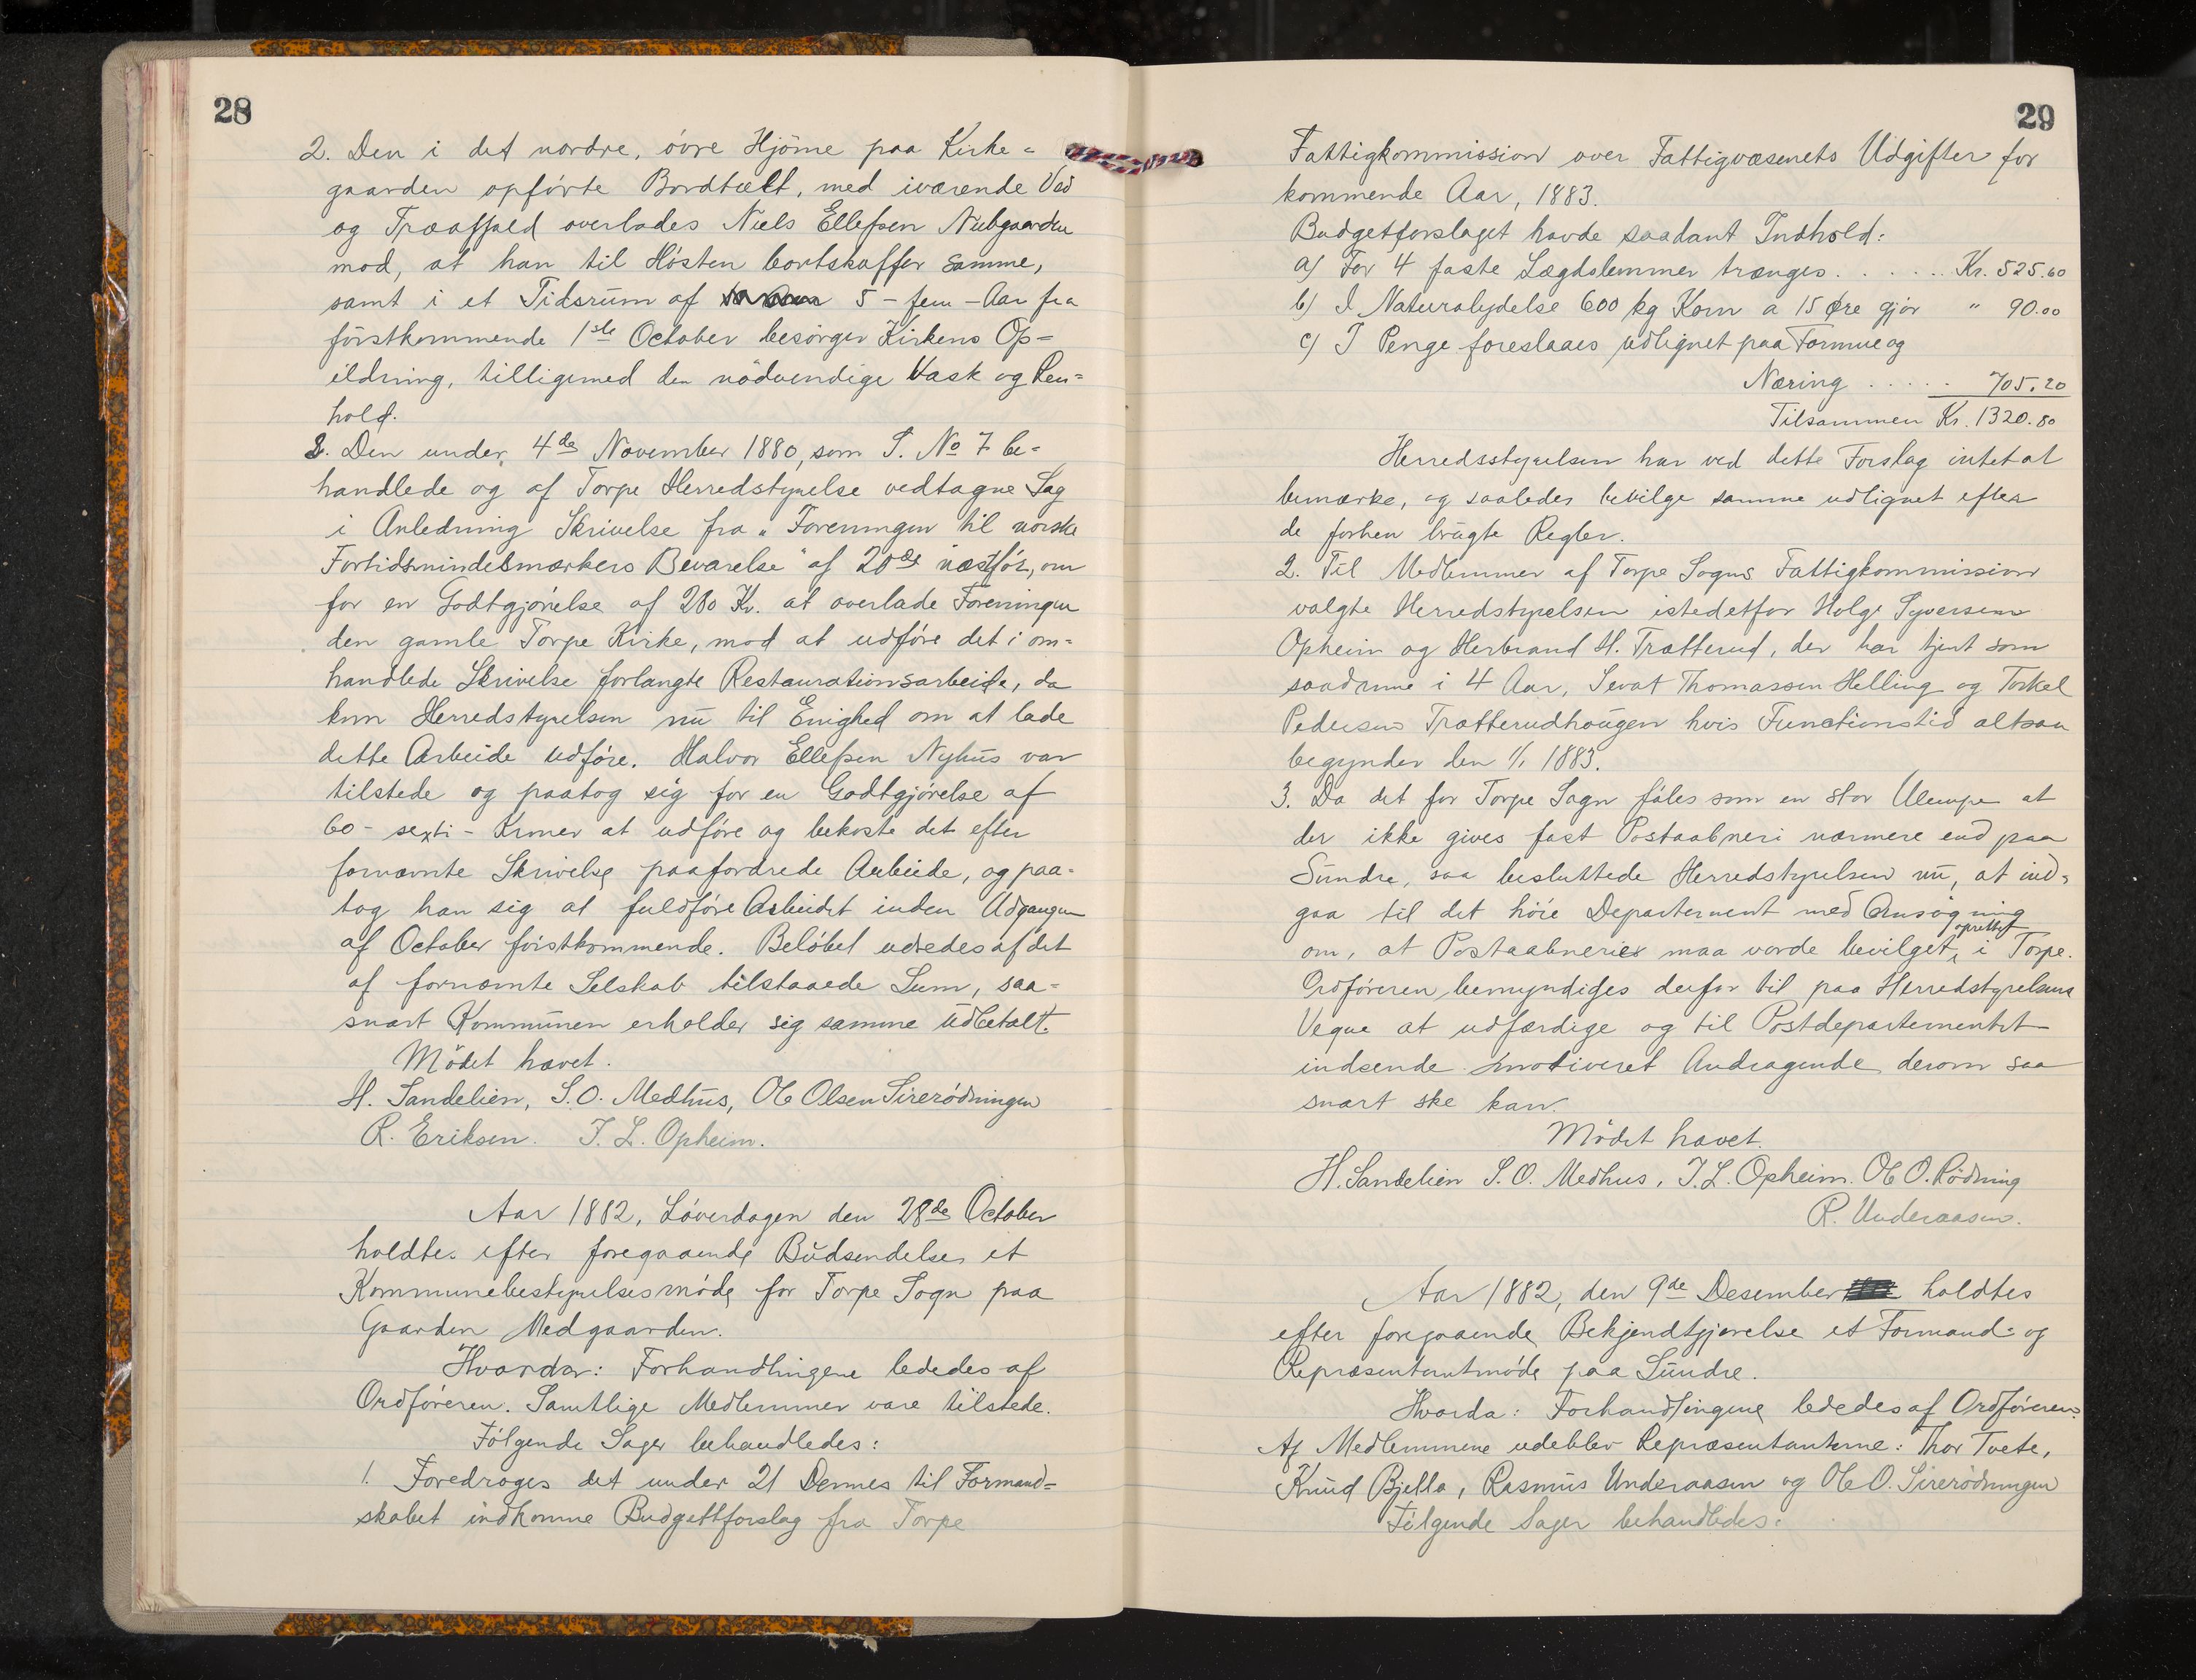 28
2. Den i det nordre, øvre Hjörne paa Kirke=
gaarden opførte Bordtælt, med iværende Ved
og Træaffald overlades Niels Ellefsen Nubgaarden
mod, at han til Høsten bortskaffer samme,
samt i et Tidsrum af 5 - fem - Aar fra
førstkommende 1ste October besørger Kirkens Op=
ildning, tilligemed den nödvendige Vask og Ren=
hold.
3. Den under 4de November 1880, som S. No 7 be=
handlede og af Torpe Herredstyrelse vedtagne Sag
i Anledning Skrivelse fra "Foreningen til norske
Fortidsmindesmærkers Bevarelse" af 20de næstfør, om
for en Godtgjørelse af 200 Kr. at overlade Foreningen
den gamle Torpe Kirke, mod at udføre det i om=
handlede Skrivelse forlangte Restaurationsarbeide, da
kom Herredstyrelsen nu til Enighed om at lade
dette Arbeide udføre. Halvor Ellefsen Nyhus var
tilstede og paatog sig for en Godtgjørelse af
60 - sexti - Kroner at udføre og bekoste det efter
fornævnte Skrivelse paafordrede Arbeide, og paa=
tog han sig at fuldføre Arbeidet inden Udgangen
af October førstkommende. Beløbet udredes af det
af fornævnte Selskab tilstaaede Sum, saa=
snart Kommunen erholder sig samme udbetalt.
Mödet hævet.
H. Sandelien, S.O. Medhus, Ole Olsen Sirerødningen
R. Eriksen. T. L. Opheim.
Aar 1882, Løverdagen den 28de October
holdtes efter foregaaende Budsendelse et
Kommunebestyrelsesmøde for Torpe Sogn paa
Gaarden Medgaarden.
Hvorda: Forhandlingene lededes af
Ordføreren. Samtlige Medlemmer vare tilstede.
Følgende Sager behandledes:
1. Foredroges det under 21 Dennes til Formand=
skabet indkomne Budgettforslag fra Torpe
29
Fattigkommission over Fattigvæsenets Udgifter for
kommende Aar, 1883.
Budgetforslaget havde saadant Indhold:
a) For 4 faste Lægdslemmer trænges . . . . . . Kr. 525.60
b) I Naturalydelse 600 kg Korn a 15 Øre gjør " 90.00
c) I Penge foreslaaes udlignet paa Formue og
Næring . . . . . 705.20
Tilsammen Kr. 1320.80
Herredsstyrelsen har ved dette Forslag intet at
bemærke, og saaledes bevilge samme udlignet efter
de forhen brugte Regler.
2. Til Medlemmer af Torpe Sogns Fattigkommission
valgte Herredstyrelsen istedetfor Holge Syversen
Opheim og Herbrand H. Trætterud, der har tjent som
saadanne i 4 Aar, Sevat Thomassen Helling og Torkel
Pedersen Trætterudhougen hvis Functionstid altsaa
begynder den 1/1 1883.
3. Da det for Torpe Sogn føles som en stor Ulempe at
der ikke gives fast Postaabneri nærmere end paa
Sundre, saa besluttede Herredstyrelsen nu, at ind=
gaa til det høie Departement med Ansøgning
om, at Postaabnerier maa vorde bevilget oprettet i Torpe.
Ordføreren bemyndiges derfor til paa Herredstyrelsens
Vegne at udfærdige og til Postdepartementet
indsende motiveret Andragende derom saa
snart ske kan.
Mødet hævet.
H. Sandelien S. O. Medhus, T. L. Opheim. Ole O. Rødning
R. Underaasen.
Aar 1882, den 9de Desember holdtes
efter foregaaende Bekjendtgjørelse et Formand= og
Repræsentantmøde paa Sundre.
Hvorda: Forhandlingene lededes af Ordføreren.
Af Medlemmene udeblev Repræsentanterne: Thor Tvete,
Knud Bjella, Rasmus Underaasen og Ole O. Sirerødningen
Følgende Sager behandledes: